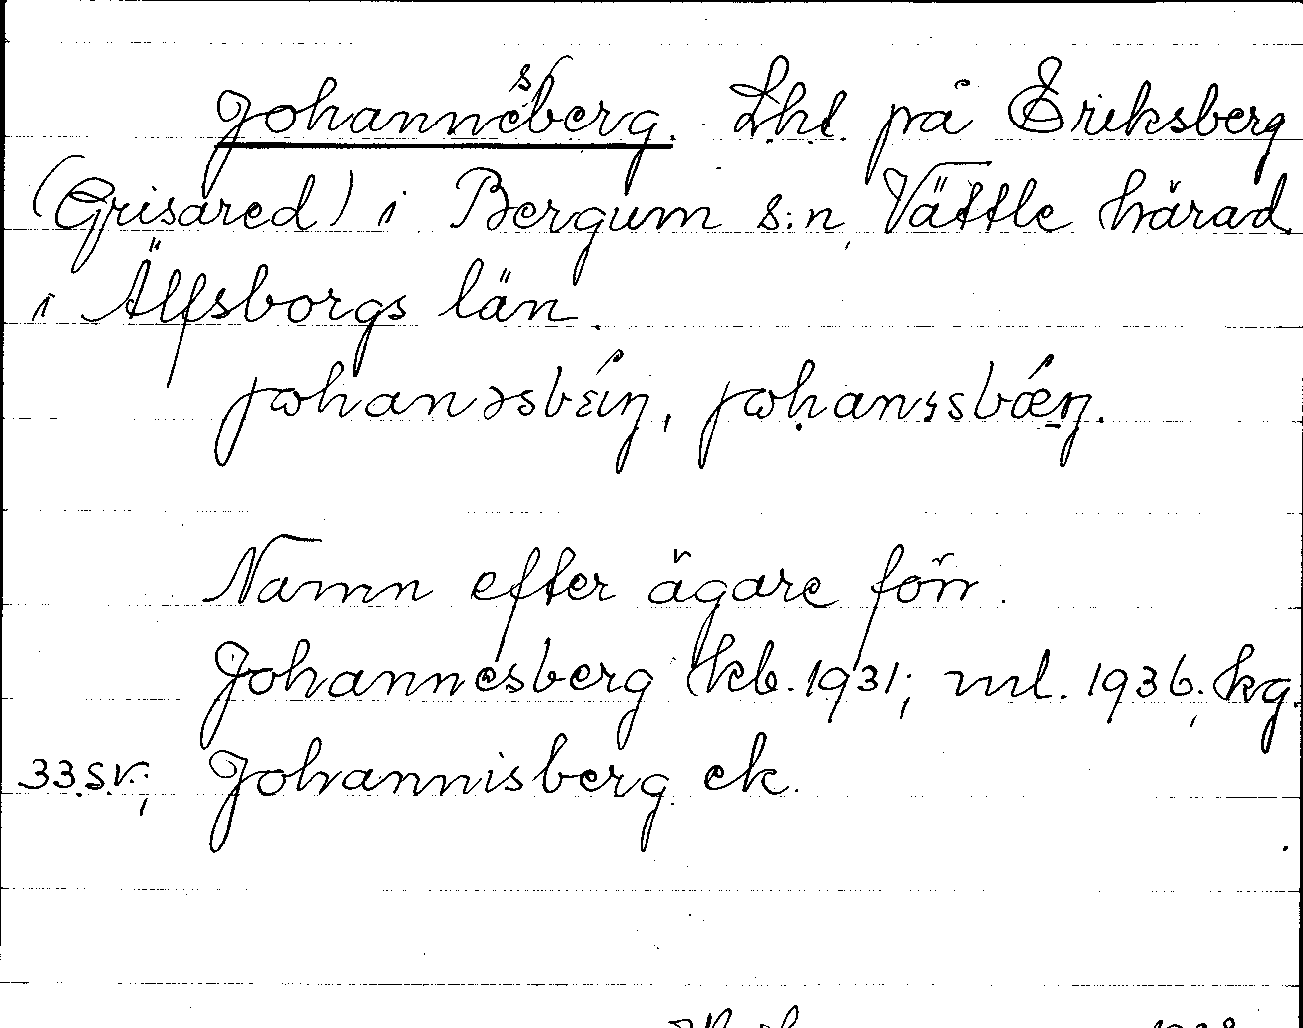 Johannesberg. Lht. på Eriksberg
(Grisared) i Bergum s:n, Vättle härad
i Älfsborgs län.
johanəsbǽrj, johanɪsbǽrj.
Namn efter ägare förr.
Johannesberg kb. 1931; ml. 1936; kg.
33 s.v.; Johannisberg ek.